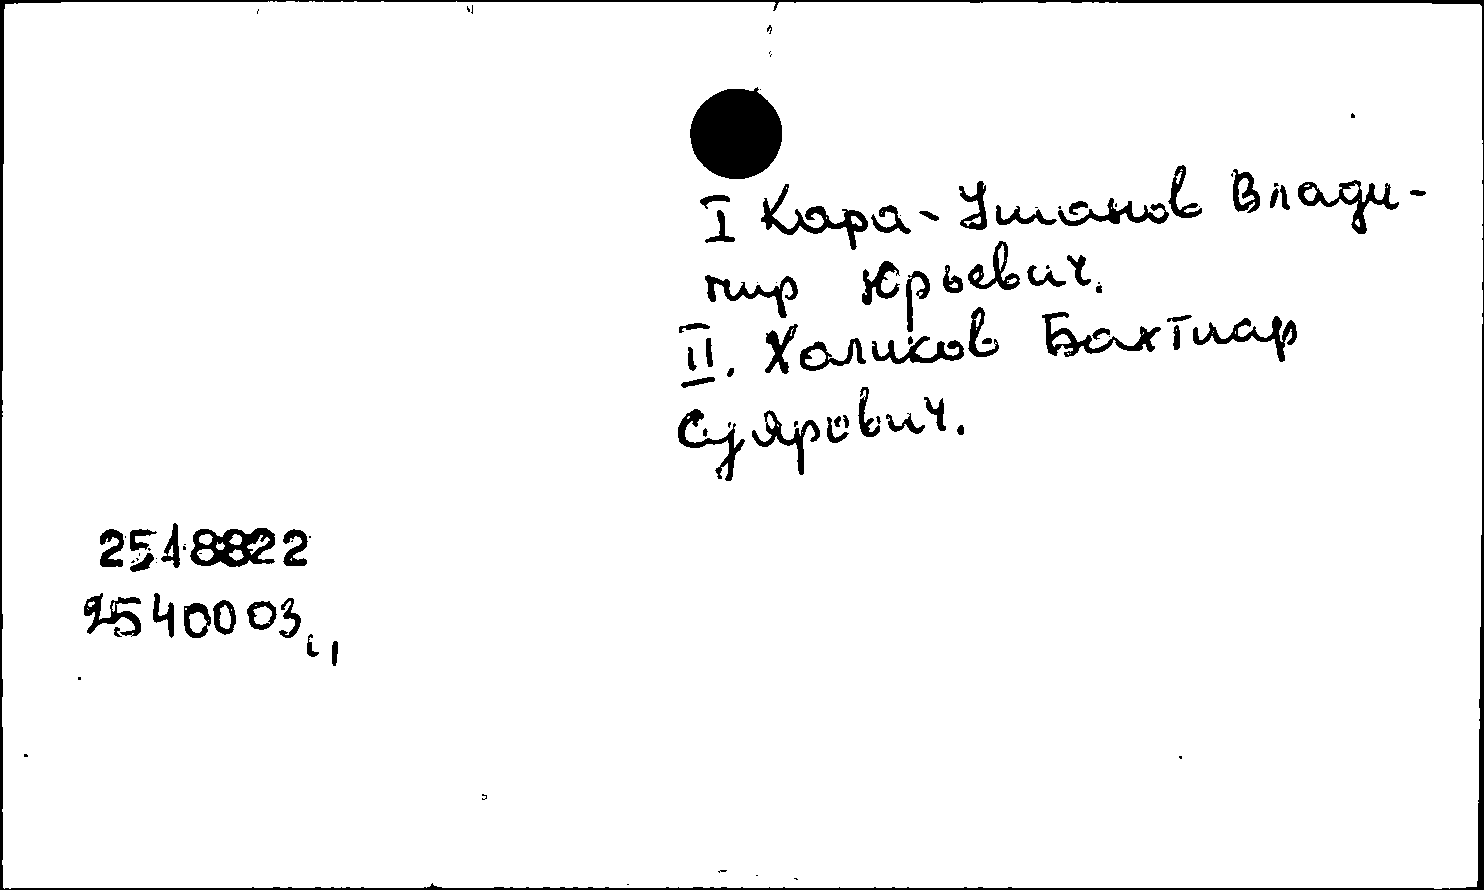 I Кара-Ушанов Влади-
мир Юрьевич.
II. Халиков Бахтиар
Суярович.
2518822
2540003